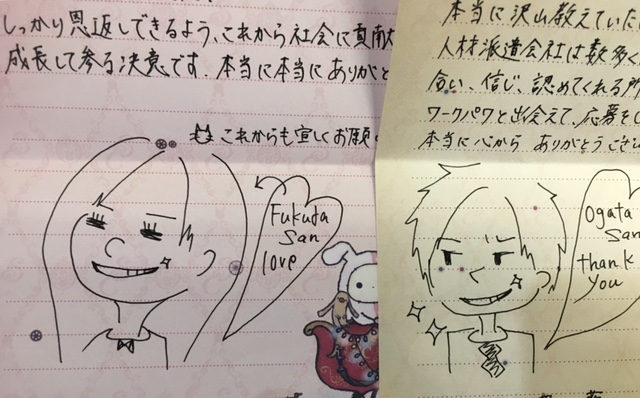 しっかり恩返しできるよう、これから社会に貢献
成長して参る決意です。本当に本当にありがと
これからも宜しくお願い
Fukuda
San
love
本当に沢山教えていただ
人材派遣会社は数多く
合い、信じ、認めてくれる所
ワークパワと出会えて、応募をし
本当に心から ありがとうござい
Ogata
San
thank
you